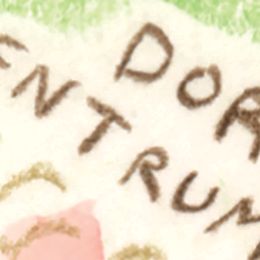 DOR
ENTRUM